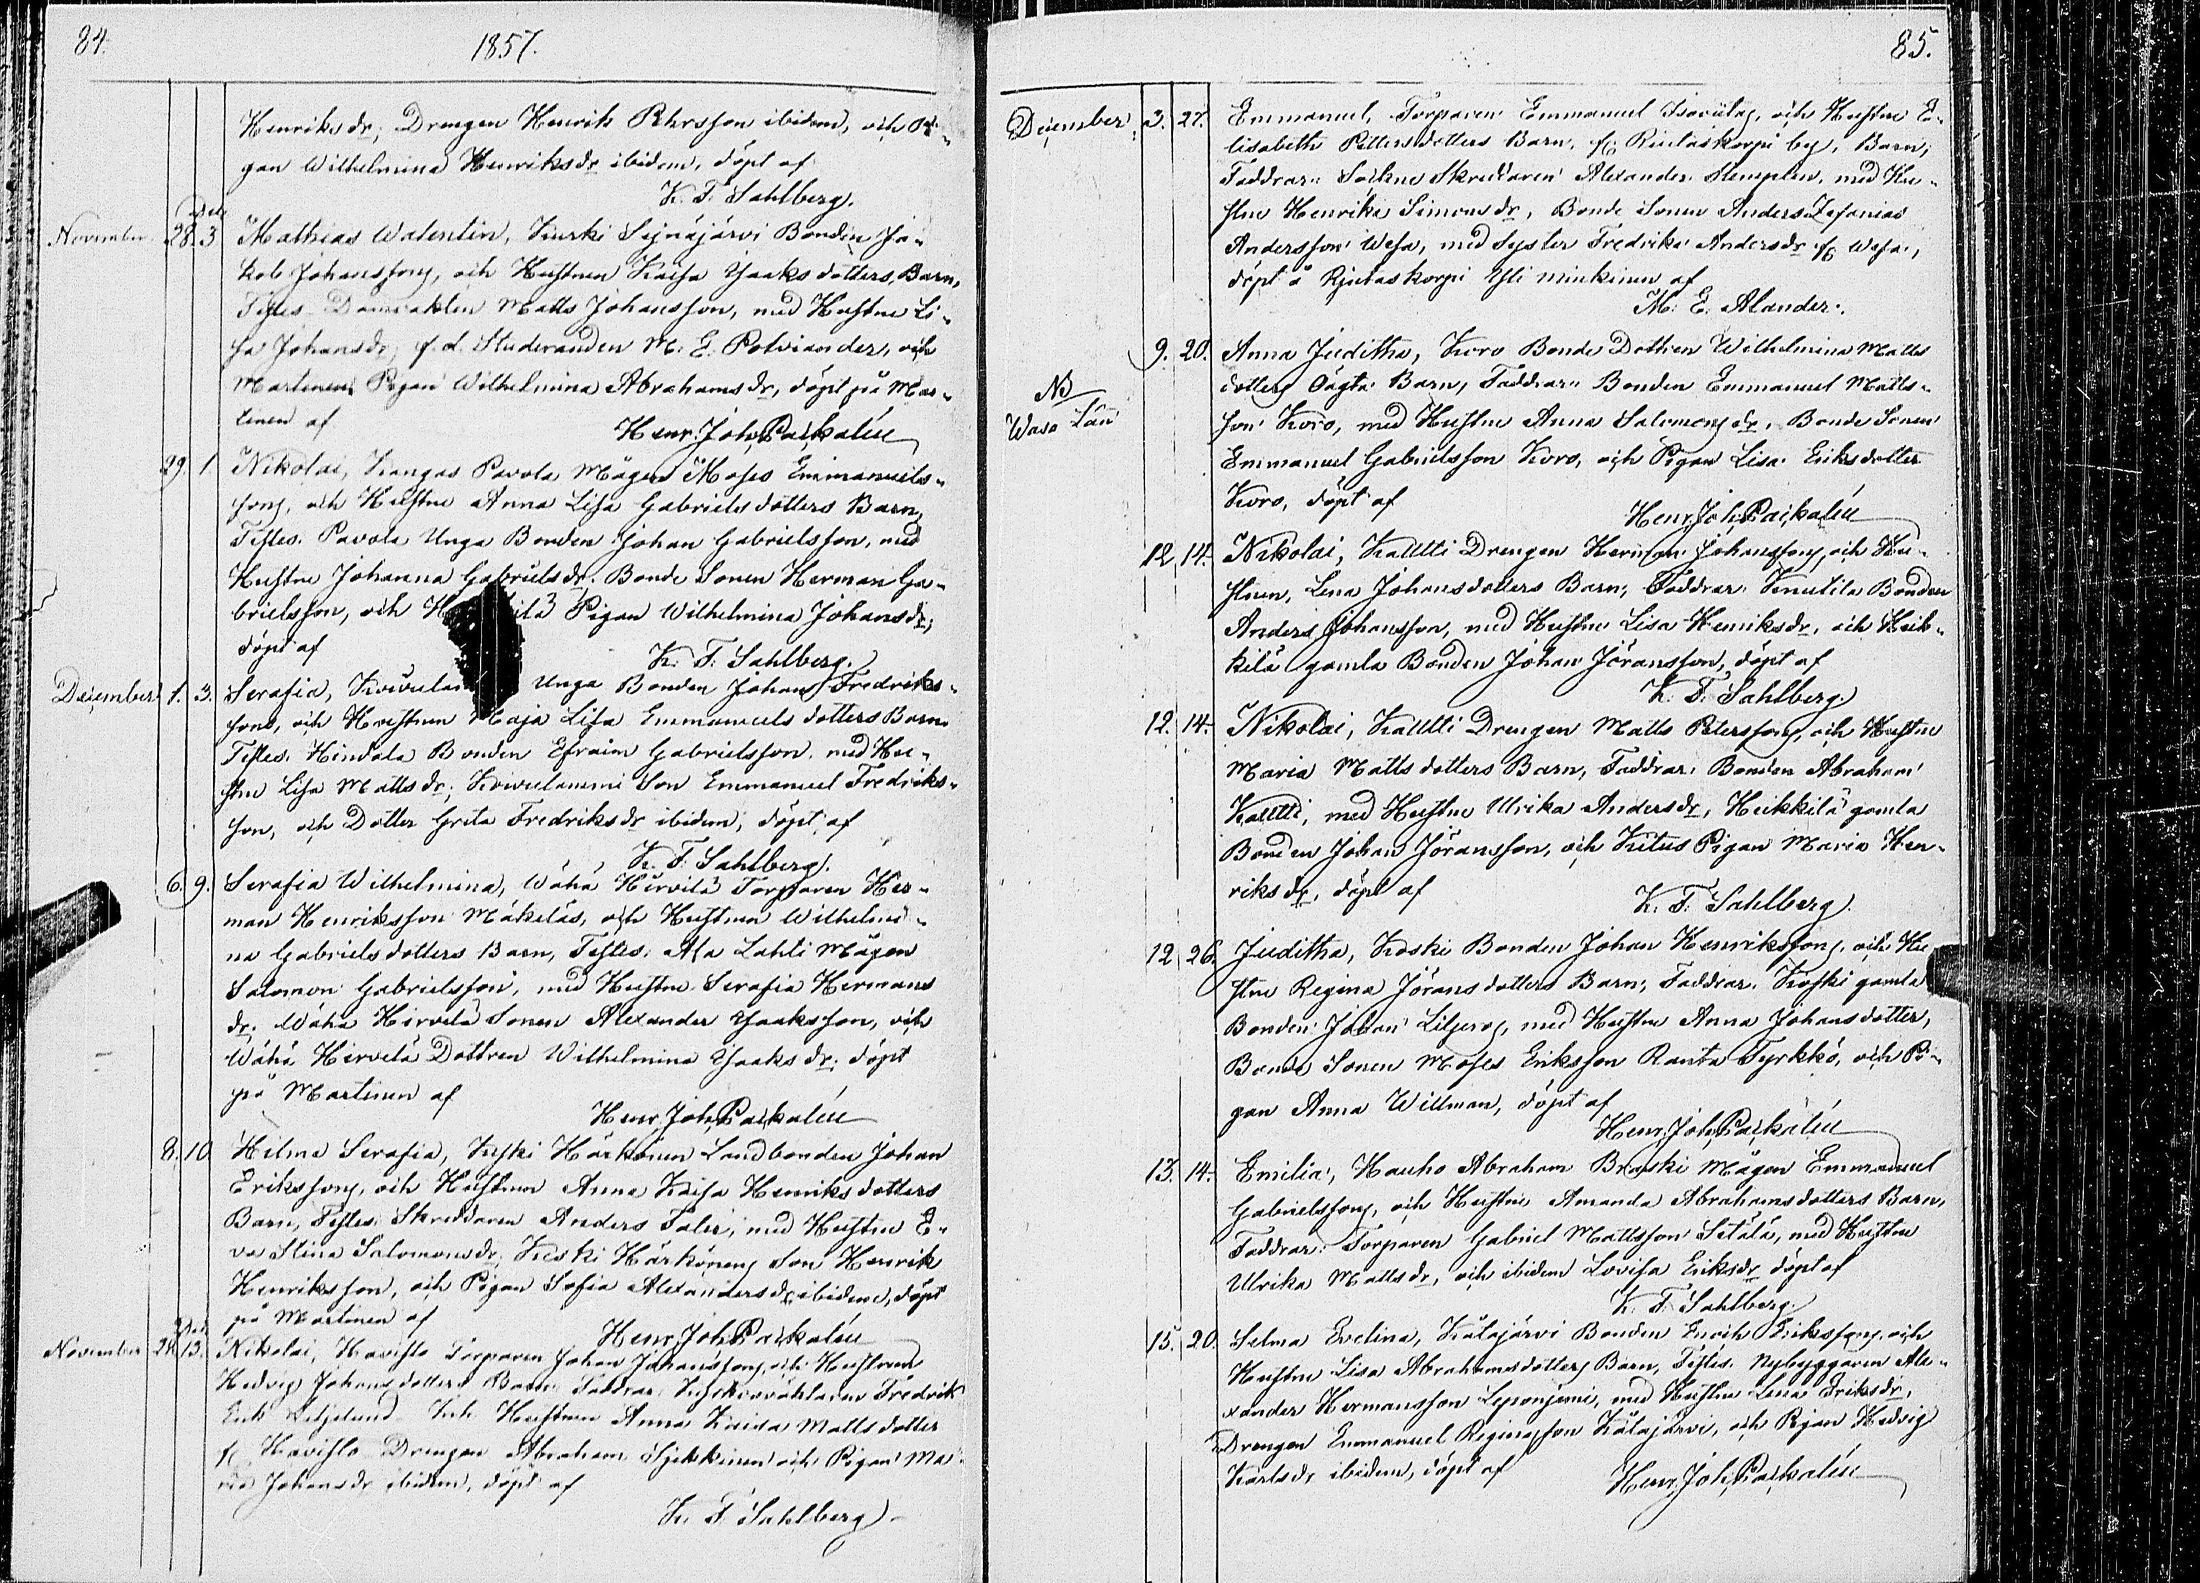 84.
1857.
Henriksdr; Drengen Henrik Ehrsson ibidem, och Pi-
gan Wilhelmina Henriksdr ibidem, döpt af
K. F. Sahlberg.
Dec.
November 28. 3 Mathias Walentin, Kurki Sejnäjärvi Bonden Ja-
kob Johanssons, och Hustrun Kaisa Isaksdotters, Barn,
Testes. Matts Johansson, med Hustru Li-
sa Johansdr, f.d. Studeranden M. E. Polviander, och
Martinen Pigan Wilhelmina Abrahamsdr, döpt på Mar-
tinen af
Henr. Joh. Paikalén
29. 1 Nikolai, Kangas Pavola Mågen Moses Emmanuels-
sons, och Hustru Anna Lisa Gabrielsdotters Barn,
Testes. Pavola Unga Bonden Johan Gabrielsson, med
Hustru Johanna Gabrielsdr. Bonde Sonen Herman Ga-
brielsson, och Pigan Wilhelmina Johansdr;
döpt af
K. F. Sahlberg.
December 1. 3. Serafia, Unga Bonden Johan Fredriks-
sons, och Hustrun Maja Lisa Emmanuelsdotters Barn
Testes. Hindala Bonden Efraim Gabrielsson, med Hu-
stru Lisa Mattsdr; Koivulammi Son Emmanuel Fredriks-
son, och Dotter Greta Fredriksdr ibidem, döpt af
K. F. Sahlberg.
6. 9. Serafia Wilhelmina, Wähä Hirvilä Torparen Her-
man Henriksson Mäkeläs, och Hustrun Wilhelmi-
na Gabrielsdotters Barn, Testes. Ala Lahti Mågen
Salomon Gabrielsson, med Hustru Serafia Hermans
dr. Wähä Hirvelä Sonen Alexander Isaksson, och
Wähä Hirvelä Dottren Wilhelmina Isaksdr; döpt
på Martinen af
Henr. Joh. Paikalén
8. 10 Hilma Serafia, Koski Härkönen Landbonden Johan
Erikssons, och Hustrun Anna Kaisa Henriksdotters
Barn, Testes. Skreddaren Anders Taler, med Hustru E-
va Stina Salomonsdr, Koski Härkönens Son Henrik
Henriksson, och Pigan Sofia Alexandersdr ibidem, döpt
på Martinen af
Henr. Joh. Paikalén
Dec.
November 24. 13. Nikolai, Havisto Torparen Johan Johanssons, och Hustrun
Hedvig Johansdotters Barn Faddrar. Kyrkowäktaren Fredrik
Erik Liljelund Hustrun Anna Kaisa Mattsdotter
fr. Havisto Drengen Abraham och Pigan Ma-
ria Johansdr ibidem, döpt af
K. F. Sahlberg
85.
December 3. 27. Emmanuel, Torparen Emmanuel och Hustru E-
lisabeth Pettersdotters Barn, fr. Riutaskorpi by, Barn;
Faddrar: Sockne Skreddaren Alexander Stemplen, med Hu-
stru Henrika Simonsdr, Bonde Sonen Anders Zefanias
Andersson Wesa, med Syster Fredrika Andersdr fr. Wesa,
döpt å Riutaskorpi Yli minkinen af
M. E. Alander.
9. 20. Anna Juditha, Koro Bonde Dottren Wilhelmina Matts
dotters Oägta Barn, Faddrar: Bonden Emmanuel Matts-
son Koro, med Hustru Anna Salomonsdr, Bonde Sonen
Emmanuel Gabrielsson Koro, och Pigan Lisa Eriksdotter
Koro, döpt af
Henr. Joh. Paikalén
NB
Wasa Län
12. 14. Nikolai, Kalltti Drengen Herman Johanssons, och Hu-
strun, Lena Johansdotters Barn; Faddrar. Knutila Bonden
Anders Johansson, med Hustru Lisa Henriksdr, och Heik-
kilä gamla Bonden Johan Jöransson, döpt af
K. F. Sahlberg.
12. 14. Nikolai, Kalltti Drengen Matts Peterssons, och Hustru
Maria Mattsdotters Barn, Faddrar. Bonden Abraham
Kalltti, med Hustru Ulrika Andersdr, Heikkilä gamla
Bonden Johan Jöransson, och Pigan Maria Hen-
riksdr, döpt af
K. F. Sahlberg.
12 26. Juditha, Koski Bonden Johan Henrikssons, och Hu-
stru Regina Jöransdotters Barn; Faddrar. Koski gamla
Bonden Johan Liljeroos, med Hustru Anna Johansdotter,
Bonde Sonen Moses Eriksson Ranta Tyrkkö, och Pi-
gan Anna Willman, döpt af
Henr. Joh. Paikalén
13. 14. Emilia, Hauho Abraham Braski Mågen Emmanuel
Gabrielssons, och Hustru Amanda Abrahamsdotters Barn,
Faddrar. Torparen Gabriel Mattsson Sitälä, med Hustru
Ulrika Mattsdr, och ibidem Lovisa Eriksdr döpt af
K. F. Sahlberg.
15. 20. Selma Evelina, Kätajärvi Bonden Enoch Erikssons, och
Hustru Lisa Abrahamsdotters Barn, Testes. Nybyggaren Ale-
xander Hermansson Leponjemi, med Hustru Lena Eriksdr,
Drengen Emmanuel Kätajärvi, och Pigan Hedvig
Karlsdr ibidem, döpt af
Henr. Joh. Paikalén